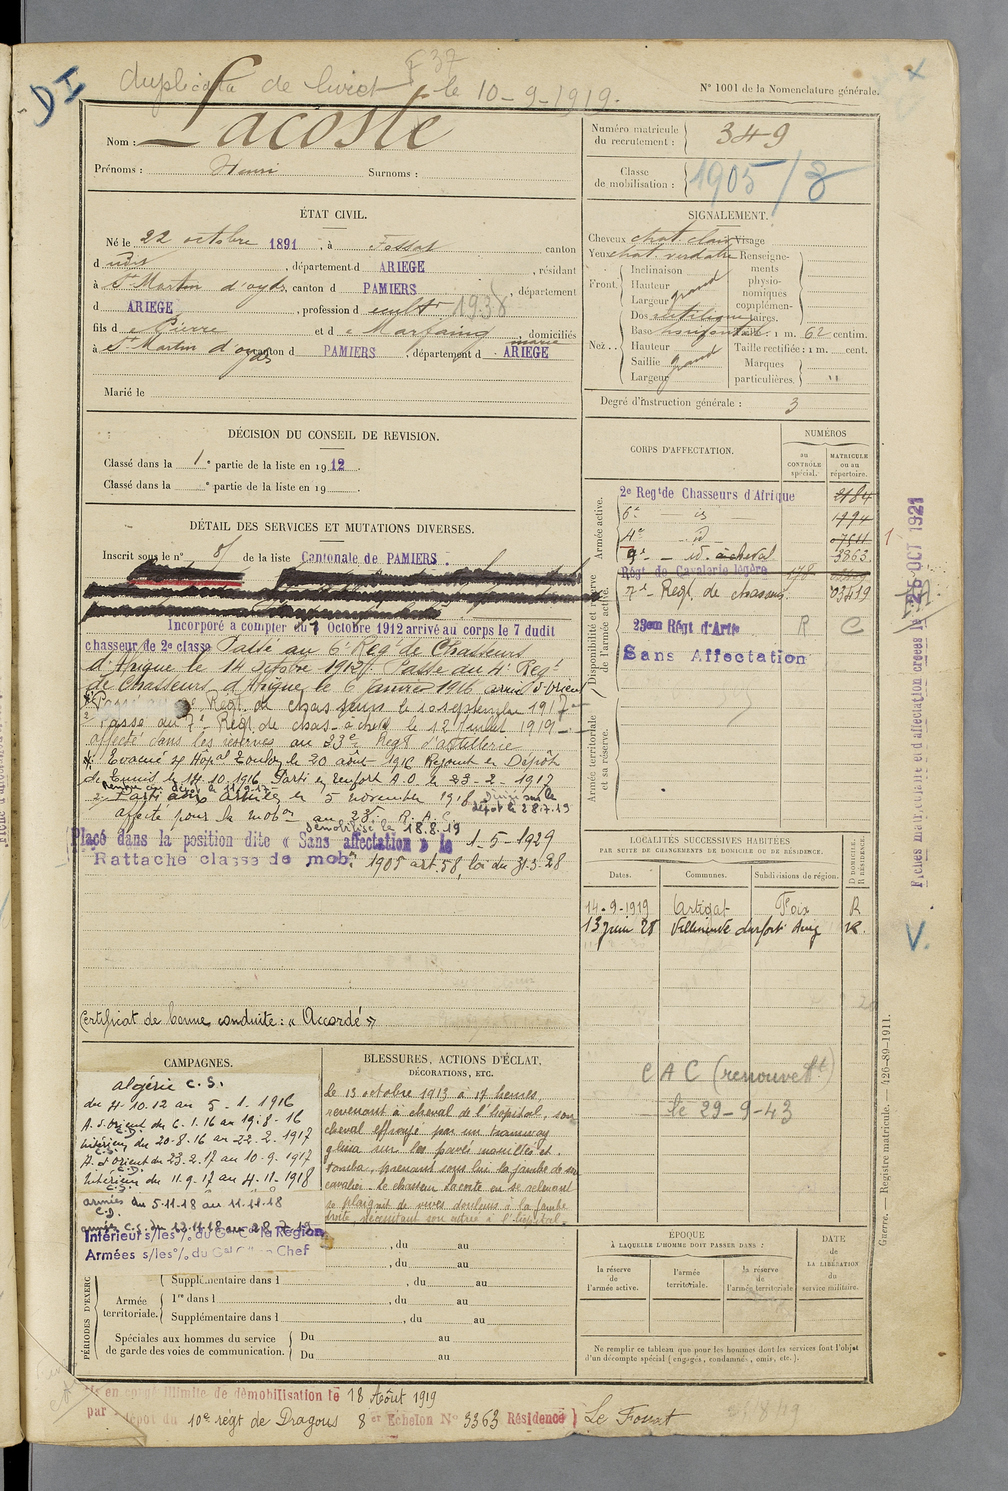 DI
duplicata de livret le 10-9-1919.
F 37
N° 1001 de la Nomenclature générale.
Nom : Lacoste
Prénoms : Henri Surnoms :
Numéro matricule du recrutement : 349
Classe de mobilisation : 1905/8
ÉTAT CIVIL.
Né le 22 octobre 1891, à Fossat canton
d udit, département d ARIEGE, résidant
à St Martin d'oyds, canton d PAMIERS, département
d ARIEGE, profession d cultr 1938
fils d e Pierre et d e Marfaing, domiciliés
à St Martin d'oyds canton d PAMIERS, département d ARIEGE
Marié le
SIGNALEMENT.
Cheveux chat. clair Visage
Yeux chat. verdatre Renseigne-
ments
physio-
nomiques
complémen-
taires.
Front. Inclinaison
Hauteur
Largeur grand
Nez.. Dos rectiligne
Base horizontale Taille : 1 m. 62 centim.
Hauteur Taille rectifiée : 1 m. cent.
Saillie grand Marques
Largeur particulières.
Degré d'instruction générale : 3
DÉCISION DU CONSEIL DE REVISION.
Classé dans la 1e partie de la liste en 1912.
Classé dans la e partie de la liste en 19 .
DÉTAIL DES SERVICES ET MUTATIONS DIVERSES.
Inscrit sous le n° 8 de la liste Cantonale de PAMIERS.
Incorporé a compter du 7 Octobre 1912 arrivé au corps le 7 dudit
chasseur de 2e classe Passé au 6e Régt de Chasseurs
d'Afrique le 14 octobre 191 Passé au 4e Regt
de Chasseurs d'Afrique le 6 janvier 1916 armée d'Orient
Régt de chasseurs le 10 septembre 1917
Passé au 7e Regt. de chas. à cheval le 12 juillet 1919
affecté dans les réserves au 23e Regt d'artillerie
Evacué Hôpal Toulon le 20 août 1916 Rejoint en Dépôt
de Tunis le 14.10.1916. Parti en renfort A.O. le 23-2-1917
Parti aux armées le 5 novembre 1918
dépôt le 28.7.19
affecté pour la mobon au 23e R.A.C
démobilisé le 18.8.19
Placé dans la position dite « Sans affectation » le 1-5-1929
Rattaché classe de mob. 1905 art. 58, loi du 31-3-28
Certificat de bonne conduite : « Accordé »
CORPS D'AFFECTATION.
NUMÉROS
au CONTRÔLE spécial.
MATRICULE ou au répertoire.
Armée active.
2e Regt de Chasseurs d'Afrique
6e — id
4e — id
9e — id. à cheval 3363
Disponibilité et réserve de l'armée active.
Régt de Cavalerie légère
7e Regt. de chasseurs. 03419
23em Régt d'Artie R C
Sans Affectation
Armée territoriale et sa réserve.
Fiches matriculaire et d'affectation créées le 26 OCT 1921
LOCALITÉS SUCCESSIVES HABITÉES
PAR SUITE DE CHANGEMENTS DE DOMICILE OU DE RÉSIDENCE.
Dates. Communes. Subdivisions de région. D DOMICILE. R RÉSIDENCE.
14-9-1919 Artigat Foix R
13 juin 28 Villeneuve durfort R.
V.
C A C (renouvelt)
le 29-9-43
CAMPAGNES.
algérie C.S.
du 7.10.12 au 5.1.1916
A. d'orient du 6.1.16 au 19.8.16
C.D.
Intérieur du 20.8.16 au 22.2.1917
C.S.
A. d'orient du 23.2.17 au 10.9.1917
C.D.
Intérieur du 11.9.17 au 4.11.1918
C.S.
armées du 5.11.18 au 11.11.18
C.D.
Intérieur s/les o/ du Gal Ct la Région
Armées s/les o/ du Gal en Chef
BLESSURES, ACTIONS D'ÉCLAT,
DÉCORATIONS, ETC.
Le 13 octobre 1913 à 17 heures,
revenant à cheval de l'hopital, son
cheval effrayé par un tramway
glissa sur les pavés mouillés et
tomba, prenant sous lui la jambe de son
cavalier. Le chasseur Lacoste en se relevant
se plaignit de vives douleurs à la jambe
droite, nécessitant son entrée à l'hopital.
, du au
, du au
PÉRIODES D'EXERC
Supplémentaire dans l , du au
Armée territoriale. 1re dans l , du au
Supplémentaire dans l , du au
Spéciales aux hommes du service de garde des voies de communication. Du au
Du au
ÉPOQUE
À LAQUELLE L'HOMME DOIT PASSER DANS :
la réserve de l'armée active. l'armée territoriale. la réserve de l'armée territoriale
DATE de LA LIBÉRATION du service militaire.
Ne remplir ce tableau que pour les hommes dont les services font l'objet
d'un décompte spécial (engagés, condamnés, omis, etc.).
Guerre. — Registre matricule. — 426-89-1911.
en congé illimité de démobilisation le 18 Août 1919
par dépot du 10e régt de Dragons 8 er Echelon N° 3363 Résidence Le Fossat